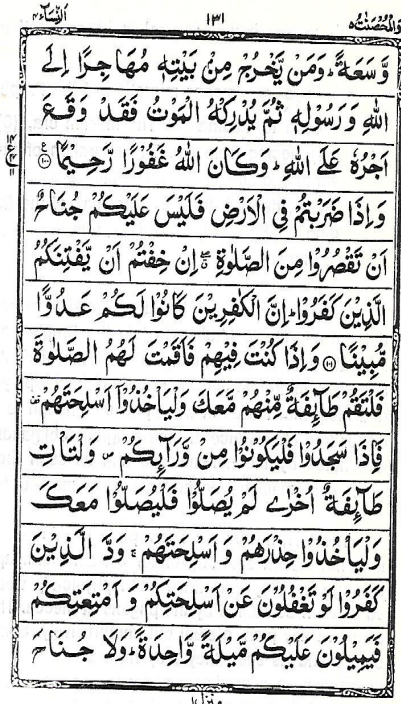 وَالْمُحْصَنٰتُ ٥ ١٣١ اَلنِّسَآء ٤
وَّسَعَةً ؕ وَمَنْ يَّخْرُجْ مِنْ بَيْتِهٖ مُهَاجِرًا اِلَى
اللّٰهِ وَرَسُوْلِهٖ ثُمَّ يُدْرِكْهُ الْمَوْتُ فَقَدْ وَقَعَ
اَجْرُهٗ عَلَى اللّٰهِ ؕ وَكَانَ اللّٰهُ غَفُوْرًا رَّحِيْمًا ۧ ﴿١٠٠﴾
وَاِذَا ضَرَبْتُمْ فِى الْاَرْضِ فَلَيْسَ عَلَيْكُمْ جُنَاحٌ
اَنْ تَقْصُرُوْا مِنَ الصَّلٰوةِ ۖ اِنْ خِفْتُمْ اَنْ يَّفْتِنَكُمُ
الَّذِيْنَ كَفَرُوْا ؕ اِنَّ الْكٰفِرِيْنَ كَانُوْا لَكُمْ عَدُوًّا
مُّبِيْنًا ﴿١٠١﴾ وَاِذَا كُنْتَ فِيْهِمْ فَاَقَمْتَ لَهُمُ الصَّلٰوةَ
فَلْتَقُمْ طَآئِفَةٌ مِّنْهُمْ مَّعَكَ وَلْيَاْخُذُوْٓا اَسْلِحَتَهُمْ ۟
فَاِذَا سَجَدُوْا فَلْيَكُوْنُوْا مِنْ وَّرَآئِكُمْ ۪ وَلْتَاْتِ
طَآئِفَةٌ اُخْرٰى لَمْ يُصَلُّوْا فَلْيُصَلُّوْا مَعَكَ
وَلْيَاْخُذُوْا حِذْرَهُمْ وَاَسْلِحَتَهُمْ ۚ وَدَّ الَّذِيْنَ
كَفَرُوْا لَوْ تَغْفُلُوْنَ عَنْ اَسْلِحَتِكُمْ وَاَمْتِعَتِكُمْ
فَيَمِيْلُوْنَ عَلَيْكُمْ مَّيْلَةً وَّاحِدَةً ؕ وَلَا جُنَاحَ
منزل ١